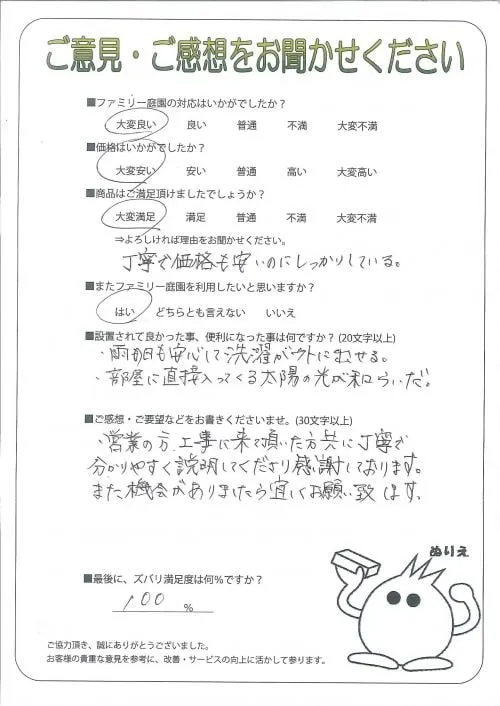 ご意見・ご感想をお聞かせください
■ファミリー庭園の対応はいかがでしたか？
大変良い 良い 普通 不満 大変不満
■価格はいかがでしたか？
大変安い 安い 普通 高い 大変高い
■商品はご満足頂けましたでしょうか？
大変満足 満足 普通 不満 大変不満
⇒よろしければ理由をお聞かせください。
丁寧で価格も安いのにしっかりしている。
■またファミリー庭園を利用したいと思いますか？
はい どちらとも言えない いいえ
■設置されて良かった事、便利になった事は何ですか？(20文字以上)
・雨の日も安心して洗濯が外に干せる。
・部屋に直接入ってくる太陽の光が和らいだ。
■ご感想・ご要望などをお書きくださいませ。(30文字以上)
・営業の方、工事に来て頂いた方共に丁寧で
分かりやすく説明してくださり感謝しております。
また機会がありましたら宜しくお願い致します。
ぬりえ
■最後に、ズバリ満足度は何％ですか？
100 %
ご協力頂き、誠にありがとうございました。
お客様の貴重な意見を参考に、改善・サービスの向上に活かして参ります。